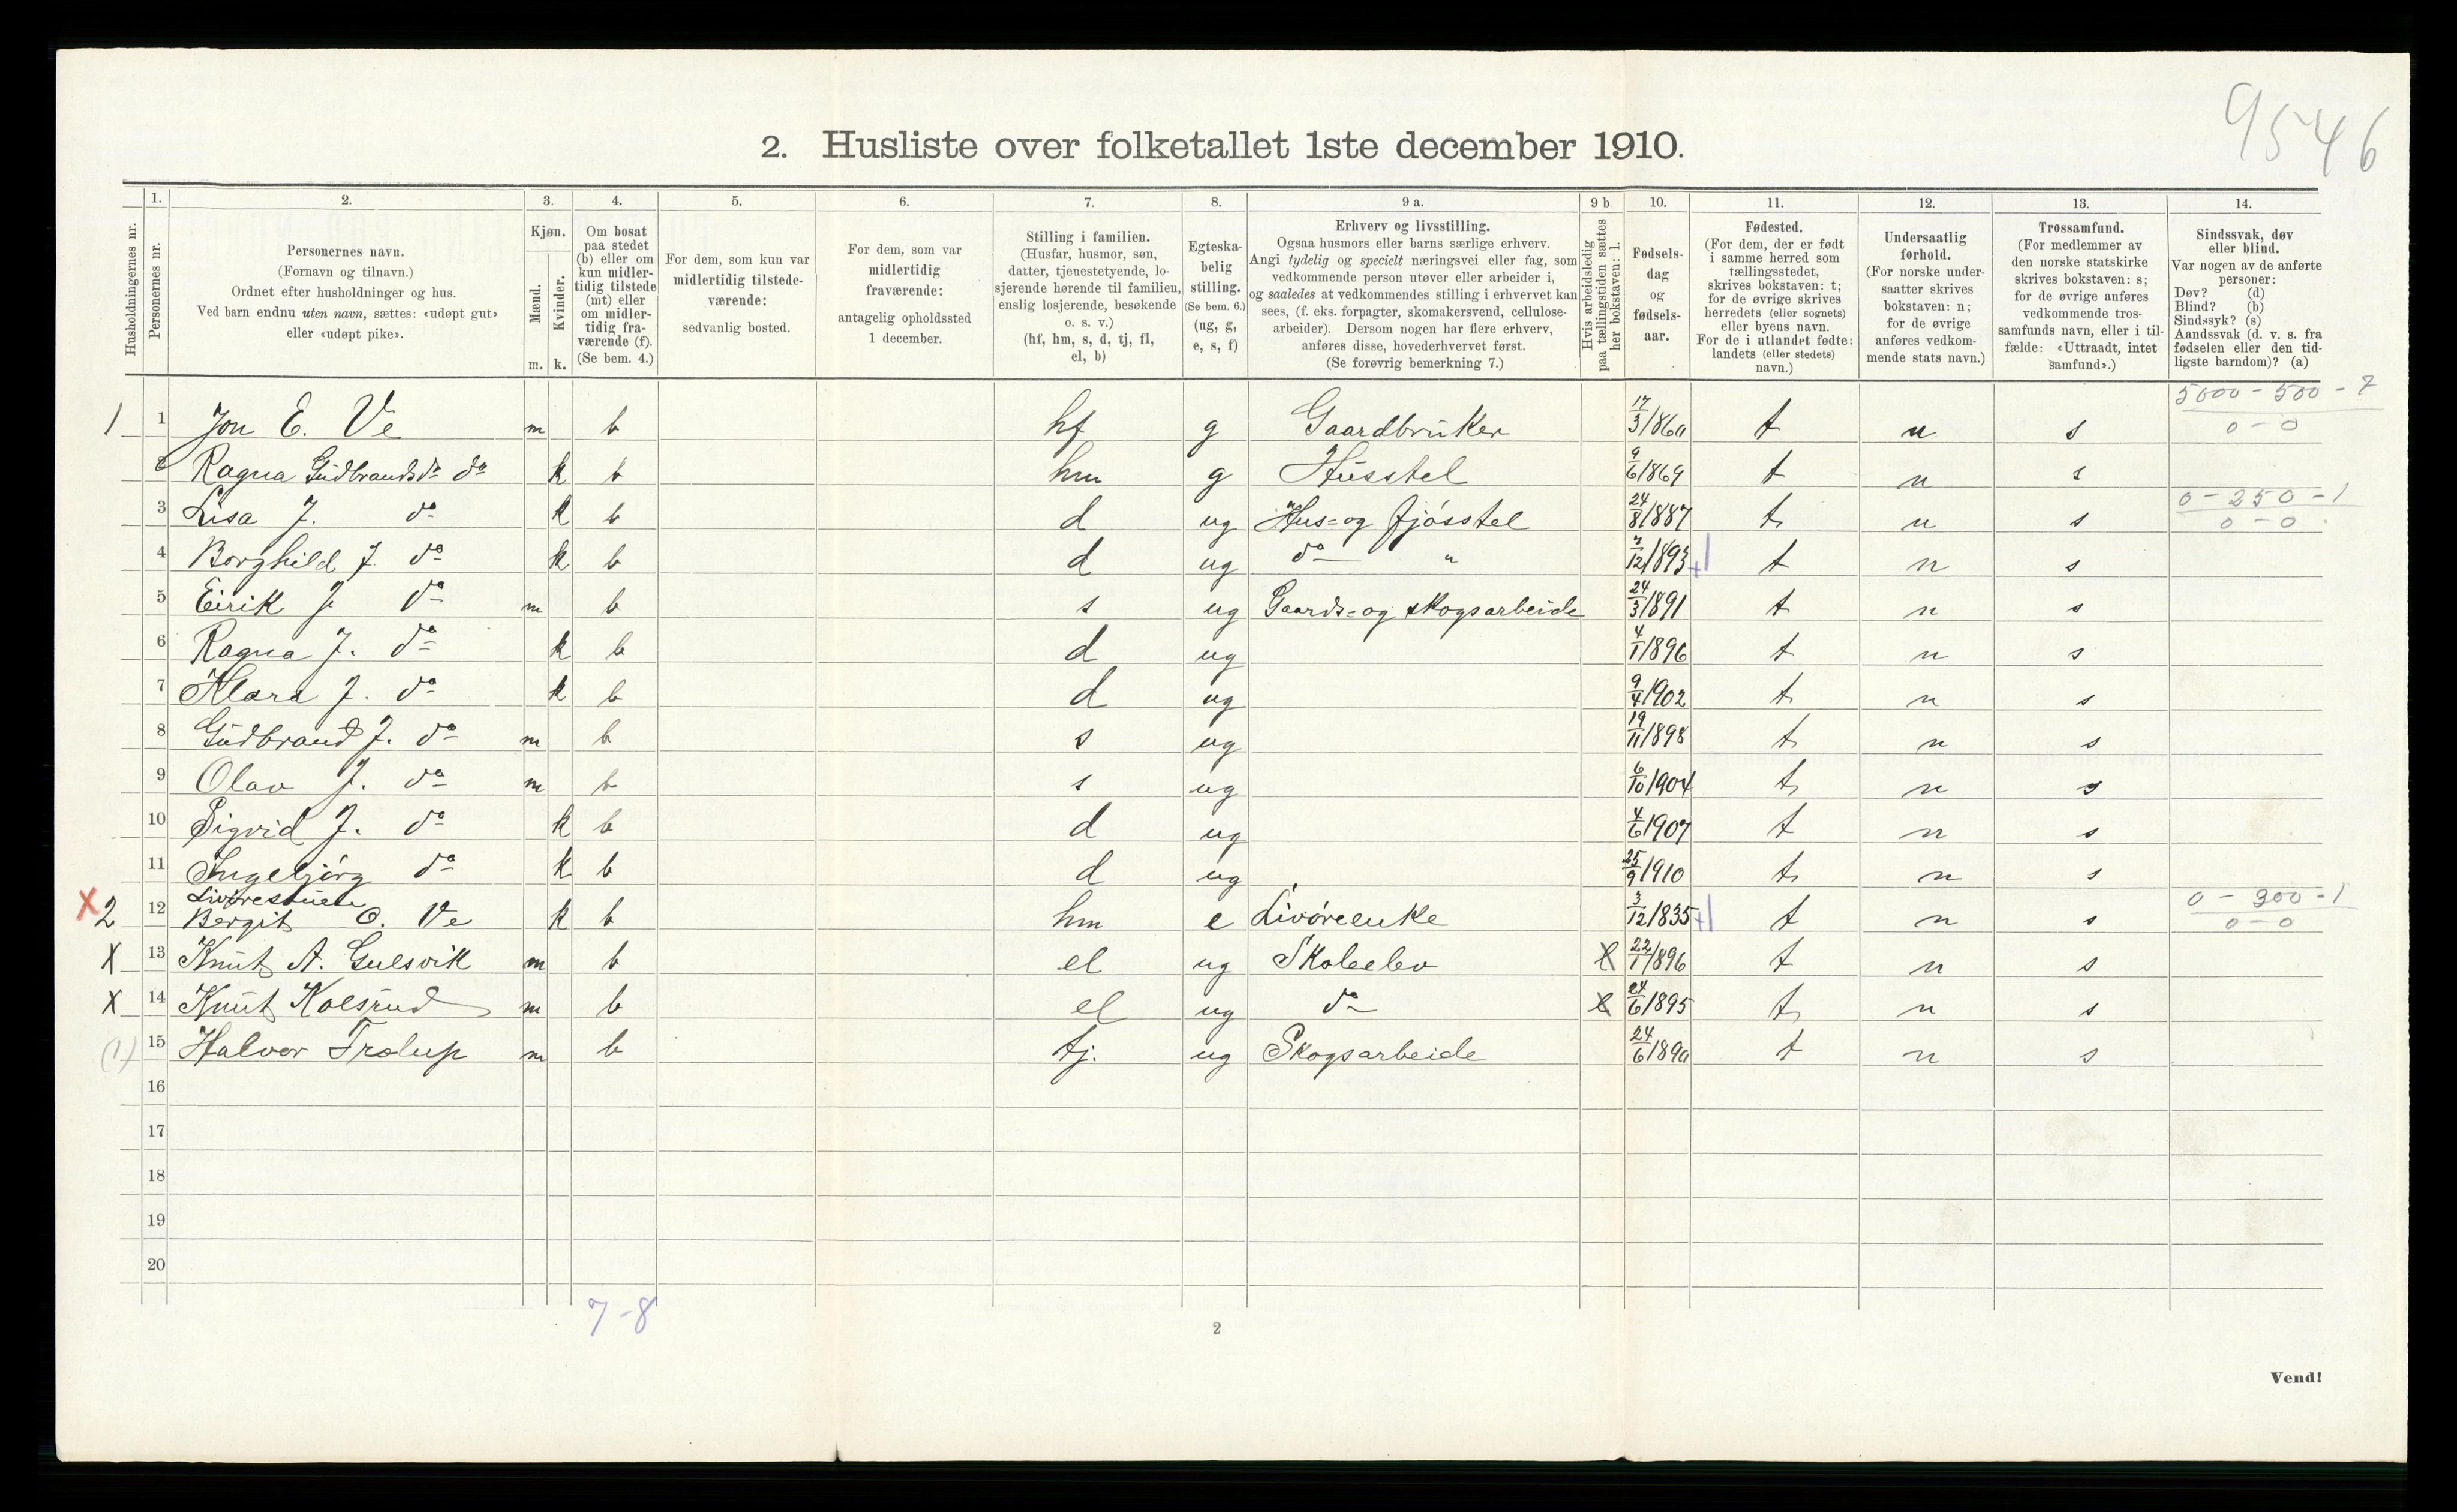 9546
2. Husliste over folketallet 1ste december 1910.
Husholdningernes nr.
1.
Personernes nr.
2.
Personernes navn.
(Fornavn og tilnavn.)
Ordnet efter husholdninger og hus.
Ved barn endnu uten navn, sættes: «udøpt gut»
eller «udøpt pike».
3.
Kjøn.
Mænd.
Kvinder.
m. k.
4.
Om bosat
paa stedet
(b) eller om
kun midler-
tidig tilstede
(mt) eller
om midler-
tidig fra-
værende (f).
(Se bem. 4.)
5.
For dem, som kun var
midlertidig tilstede-
værende:
sedvanlig bosted.
6.
For dem, som var
midlertidig
fraværende:
antagelig opholdssted
1 december.
7.
Stilling i familien.
(Husfar, husmor, søn,
datter, tjenestetyende, lo-
sjerende hørende til familien,
enslig losjerende, besøkende
o. s. v.)
(hf, hm, s, d, tj, fl,
el, b)
8.
Egteska-
belig
stilling.
(Se bem. 6.)
(ug, g,
e, s, f)
9 a.
Erhverv og livsstilling.
Ogsaa husmors eller barns særlige erhverv.
Angi tydelig og specielt næringsvei eller fag, som
vedkommende person utøver eller arbeider i,
og saaledes at vedkommendes stilling i erhvervet kan
sees, (f. eks. forpagter, skomakersvend, cellulose-
arbeider). Dersom nogen har flere erhverv,
anføres disse, hovederhvervet først.
(Se forøvrig bemerkning 7.)
9 b
Hvis arbeidsledig
paa tællingstiden sættes
her bokstaven: l.
10.
Fødsels-
dag
og
fødsels-
aar.
11.
Fødested.
(For dem, der er født
i samme herred som
tællingsstedet,
skrives bokstaven: t;
for de øvrige skrives
herredets (eller sognets)
eller byens navn.
For de i utlandet fødte:
landets (eller stedets)
navn.)
12.
Undersaatlig
forhold.
(For norske under-
saatter skrives
bokstaven: n;
for de øvrige
anføres vedkom-
mende stats navn.)
13.
Trossamfund.
(For medlemmer av
den norske statskirke
skrives bokstaven: s;
for de øvrige anføres
vedkommende tros-
samfunds navn, eller i til-
fælde: «Uttraadt, intet
samfund».)
14.
Sindssvak, døv
eller blind.
Var nogen av de anførte
personer:
Døv? (d)
Blind? (b)
Sindssyk? (s)
Aandssvak (d. v. s. fra
fødselen eller den tid-
ligste barndom)? (a)
5000 - 500 - 7
1 1 Jon E. Ve m b hf g Gaardbruker 17/3 1860 t n s 0 - 0
2 Ragna Gudbrandsdr do k b hm g Husstel 9/6 1869 t n s
0 - 250 - 1
3 Lisa J. do k b d ug Hus= og fjösstel 24/8 1887 t n s 0 - 0
4 Borghild J do k b d ug do " 7/12 1893 t n s
5 Eirik J do m b s ug Gaards= og skogsarbeide 24/3 1891 t n s
6 Ragna J. do k b d ug 4/1 1896 t n s
7 Klara J. do k b d ug 9/4 1902 t n s
8 Gudbrand J. do m b s ug 19/11 1898 t n s
9 Olav J. do m b s ug 6/10 1904 t n s
10 Sigrid J. do k b d ug 4/6 1907 t n s
11 Ingebjörg do k b d ug 25/9 1910 t n s
Livörestuen
0 - 300 - 1
X 2 12 Bergit O. Ve k b hm e Livöreenke 3/12 1835 t n s 0 - 0
X 13 Knut A. Gulsvik m b el ug Skoleelev l 22/1 1896 t n s
X 14 Knut Kolsrud m b el ug do l 24/6 1895 t n s
(1) 15 Halvor Trolup m b tj. ug Skogsarbeide 24/6 1890 t n s
16
17
18
19
20
7-8
2
Vend!